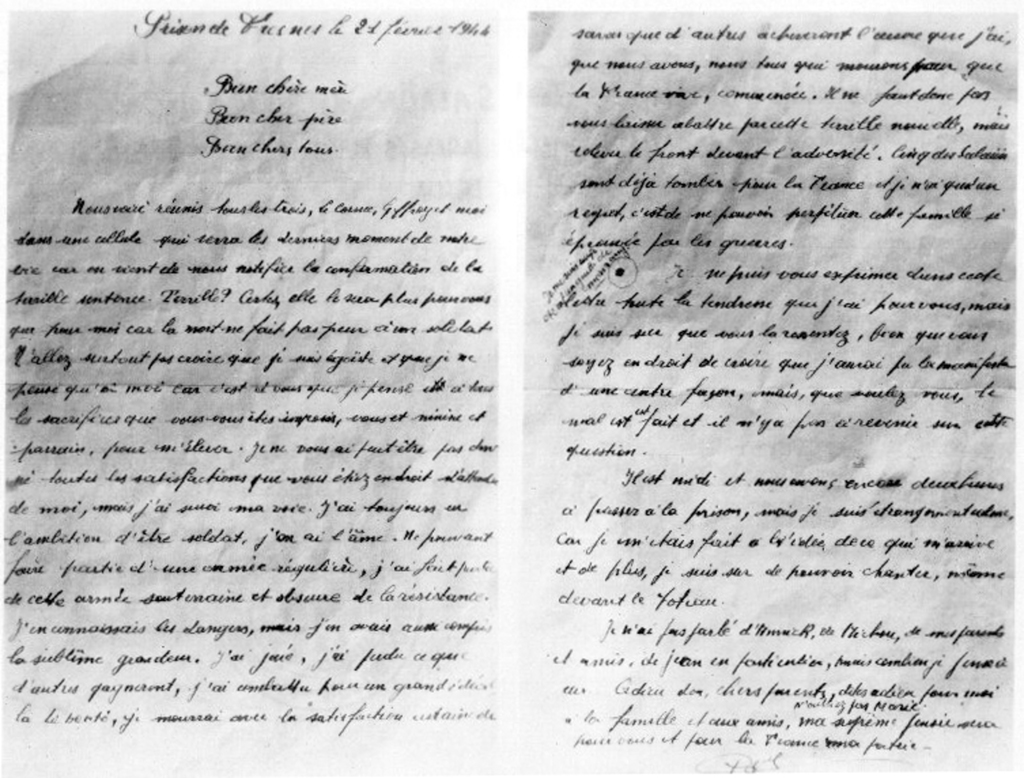 Prison de Fresnes le 21 février 1944
Bien chère mère
Bien cher père
Bien chers tous.
Nous voici réunis tous les trois, le Cornec, Geffroy et moi
dans une cellule qui serra les derniers moment de notre
vie car on vient de nous notifier la confirmation de la
terrible sentence. Terrible? Certes, elle le sera plus pour vous
que pour moi car la mort ne fait pas peur à un soldat.
N'allez surtout pas croire que je suis égoïste et que je ne
pense qu'à moi car c'est à vous que je pense et à tous
les sacrifices que vous vous êtes imposés, vous et ninine et
parrain, pour m'élever. Je ne vous ai peut être pas don
né toutes les satisfactions que vous étiez en droit d'attendre
de moi, mais j'ai suivi ma voie. J'ai toujours eu
l'ambition d'être soldat, j'en ai l'âme. Ne pouvant
faire partie d'une armée régulière, j'ai fait partie
de cette armée souterraine et obscure de la résistance.
J'en connaissais les dangers, mais j'en avais aussi compris
la sublime grandeur. J'ai joué, j'ai perdu ce que
d'autres gagneront, j'ai combattu pour un grand idéal
la liberté, je mourrai avec la satisfaction certaine de
savoir que d'autres achèveront l'œuvre que j'ai,
que nous avons, nous tous qui mourons pour que
la France vive, commencée. Il ne faut donc pas
vous laisser abattre par cette terrible nouvelle, mais
relever le front devant l'adversité. Cinq des Salaün
sont déjà tombés pour la France et je n'ai qu'un
regret, c'est de ne pouvoir perpétuer cette famille si
éprouvée par les guerres.
Je ne puis vous exprimer dans cette
lettre toute la tendresse que j'ai pour vous, mais
je suis sur que vous la ressentez, bien que vous
soyez en droit de croire que j'aurai pu la manifester
d'une autre façon, mais, que voulez vous, le
mal est fait et il n'y a pas à revenir sur cette
question.
Il est midi et nous avons encore deux heures
à passer à la prison, mais je suis étrangement calme,
car je m'étais fait à l'idée de ce qui m'arrive
et de plus, je suis sur de pouvoir chanter, même
devant le Poteau.
Je n'ai pas parlé d'Annick, de Michou, de mes parents
et amis, de jean en particulier, mais combien je pense à
eux. Adieu donc, chers parents, dites adieu pour moi
n'oubliez pas Marie
à la famille et aux amis, ma suprême pensée sera
pour vous et pour la France ma patrie.